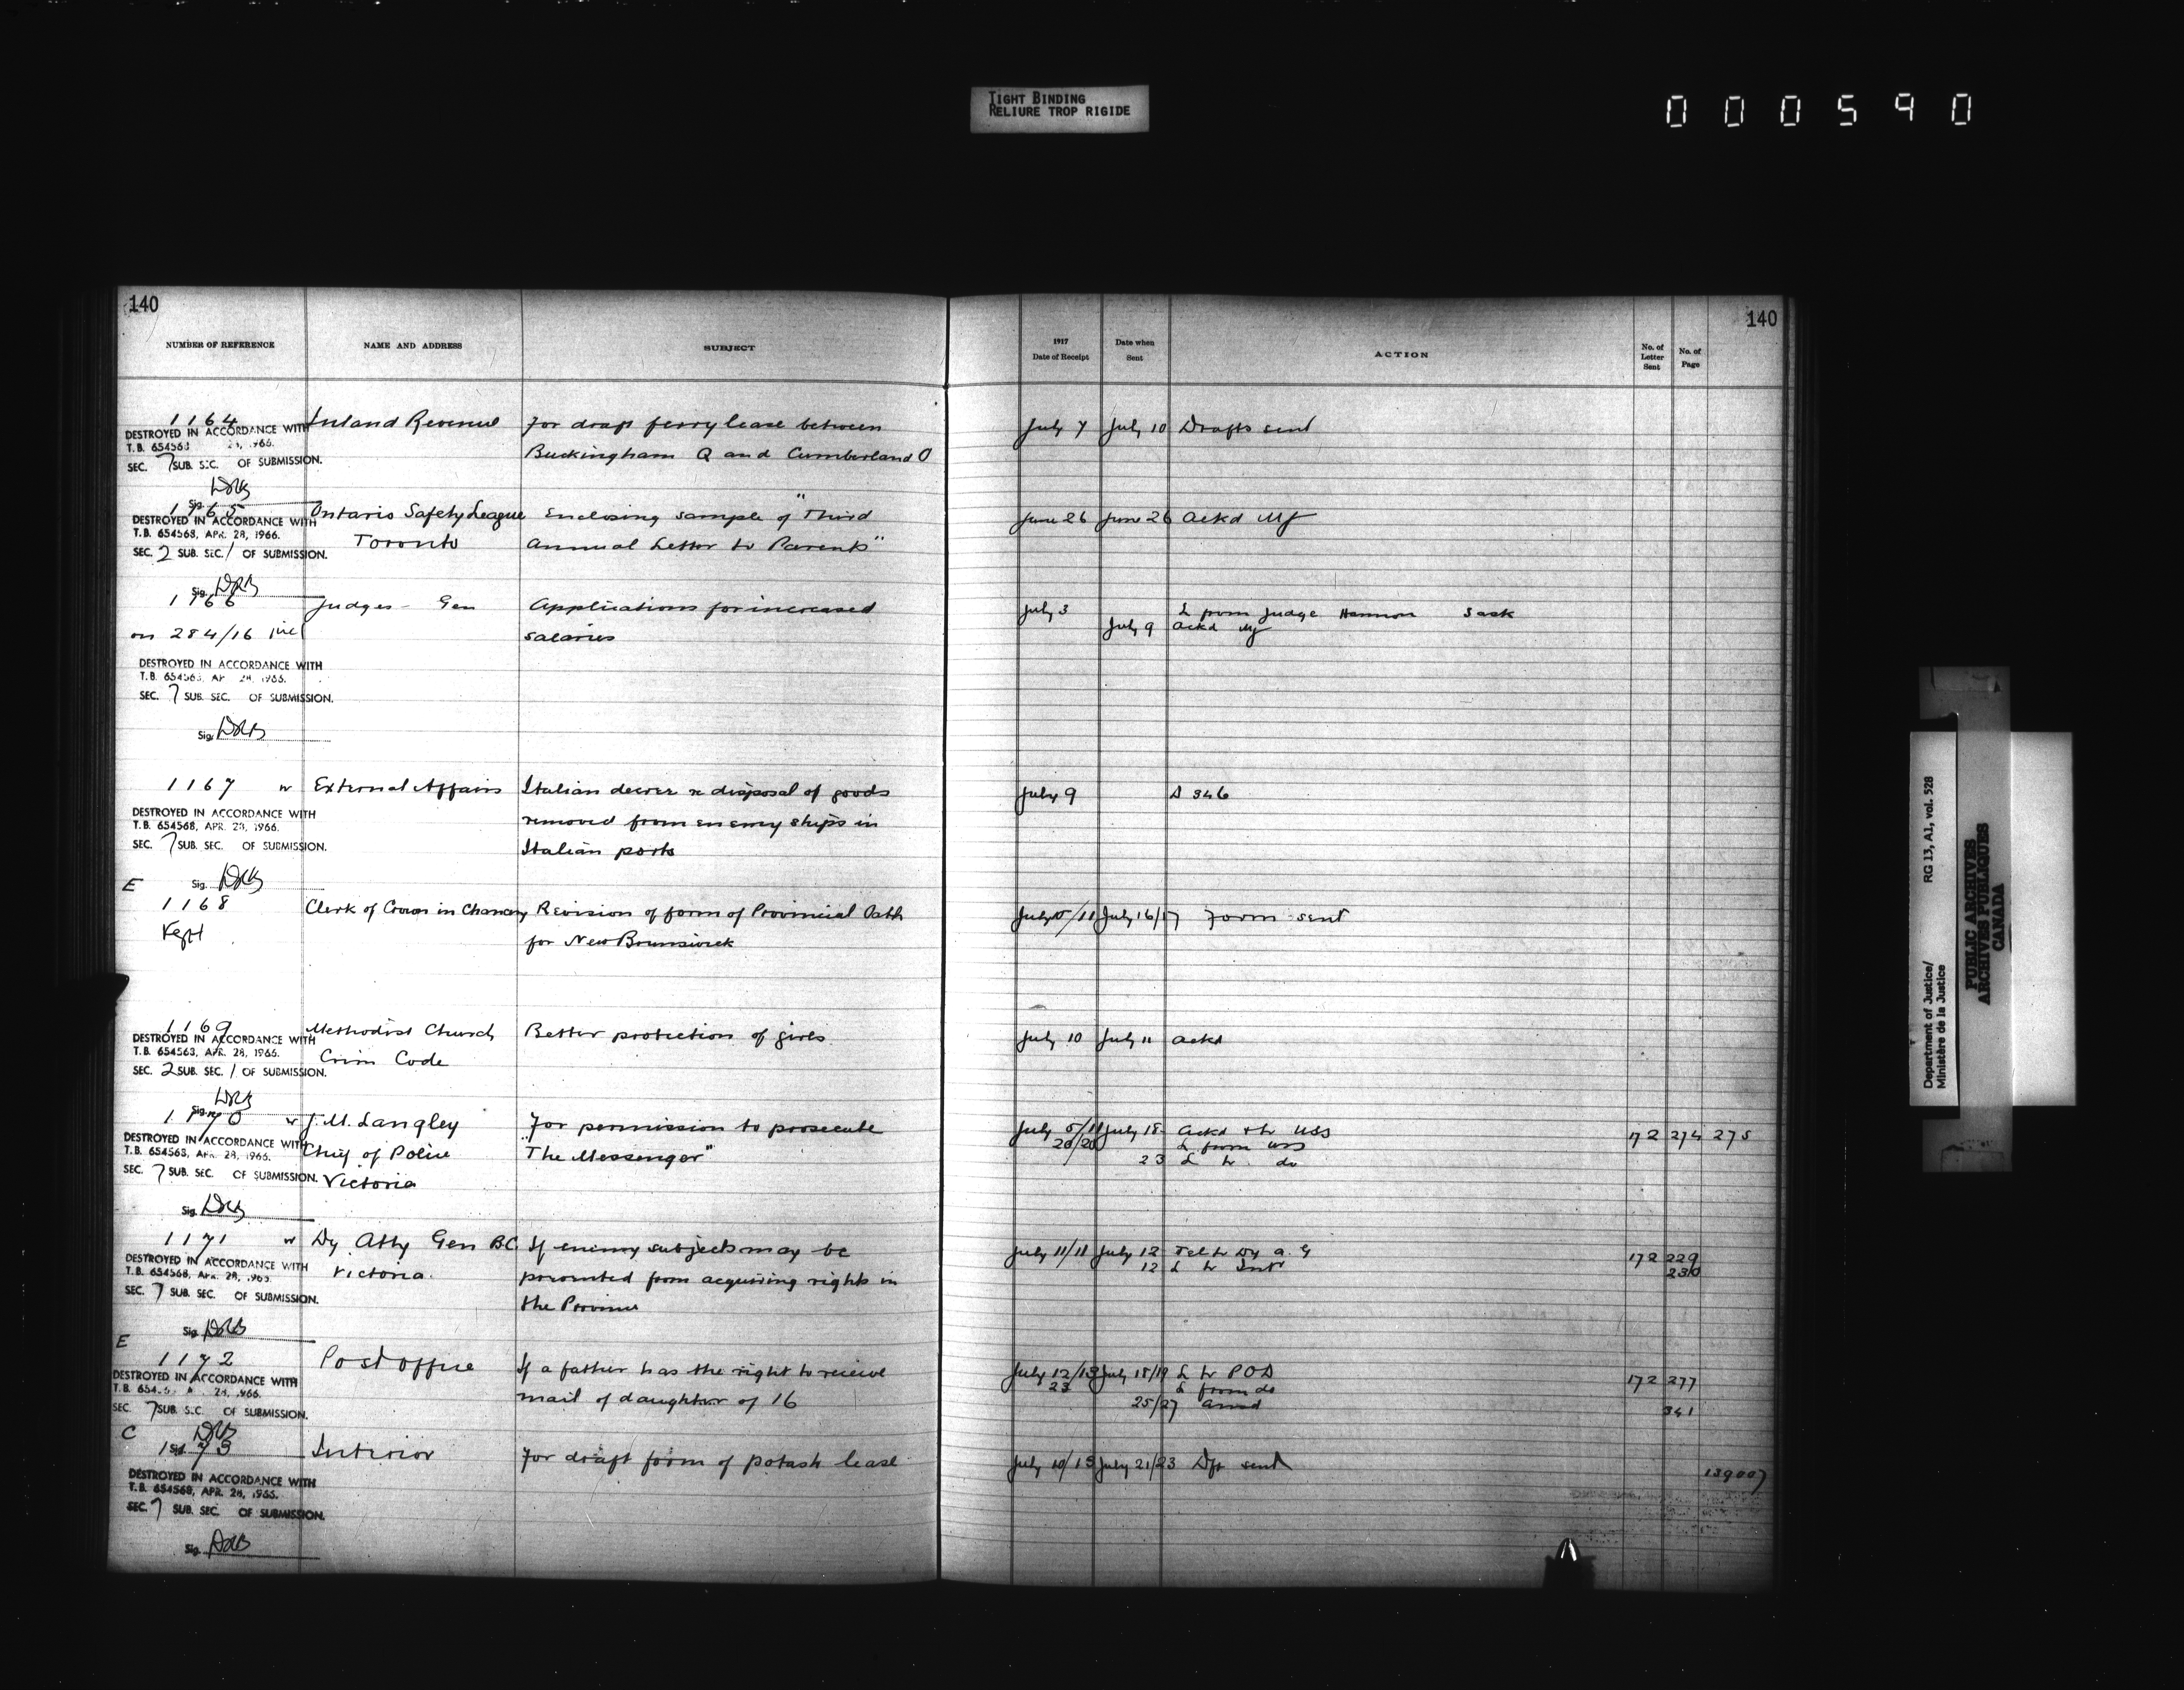 TIGHT BINDING
RELIURE TROP RIGIDE
000590
140
NUMBER OF REFERENCE NAME AND ADDRESS SUBJECT
1164 Inland Revenue For draft ferry lease between
DESTROYED IN ACCORDANCE WITH
T.B. 654563 28, 1966.
Buckingham Q and Cumberland O
SEC. 7 SUB. SEC. OF SUBMISSION.
Sig. DRB
1165 Ontario Safety League Enclosing sample of "Third
DESTROYED IN ACCORDANCE WITH
T.B. 654568, APR. 28, 1966.
Toronto Annual Letter to Parents"
SEC. 2 SUB. SEC. 1 OF SUBMISSION.
Sig. DRB
1166 Judges - Gen Applications for increased
on 284/16 incl salaries
DESTROYED IN ACCORDANCE WITH
T.B. 654563, AP 28, 1966.
SEC. 7 SUB. SEC. OF SUBMISSION.
Sig. DRB
1167 w External Affairs Italian decree re disposal of goods
DESTROYED IN ACCORDANCE WITH
T.B. 654568, APR. 28, 1966.
removed from enemy ships in
SEC. 7 SUB. SEC. OF SUBMISSION.
Italian ports
E Sig. DRB
1168 Clerk of Crown in Chancery Revision of form of Provincial Oath
Kept for New Brunswick
1169 Methodist Church Better protection of girls
DESTROYED IN ACCORDANCE WITH
T.B. 654563, APR. 28, 1966.
Crim Code
SEC. 2 SUB. SEC. 1 OF SUBMISSION.
Sig. DRB
1170 w J. M. Langley For permission to prosecute
DESTROYED IN ACCORDANCE WITH
T.B. 654563, APR. 28, 1966.
Chief of Police "The Messenger"
SEC. 7 SUB. SEC. OF SUBMISSION.
Victoria
Sig. DRB
1171 w Dy Atty Gen BC If enemy subjects may be
DESTROYED IN ACCORDANCE WITH
T.B. 654568, APR. 28, 1965.
Victoria. prevented from acquiring rights in
SEC. 7 SUB. SEC. OF SUBMISSION.
the Province
Sig. DRB
E
1172 Post Office If a father has the right to receive
DESTROYED IN ACCORDANCE WITH
28, 1966.
mail of daughter of 16
SEC. 7 SUB. SEC. OF SUBMISSION.
C Sig. DRB
1173 Interior For draft form of potash lease
DESTROYED IN ACCORDANCE WITH
T.B. 654568, APR. 28, 1966.
SEC. 7 SUB. SEC. OF SUBMISSION.
Sig. DRB
140
1917
Date of Receipt Date when Sent ACTION No. of Letter Sent No. of Page
July 7 July 10 Drafts sent
June 26 June 26 Ackd MJ
July 3 L from Judge Hannon Sask
July 9 Ackd MJ
July 9 D 346
July 5/11 July 16/17 Form sent
July 10 July 11 Ackd
July 5/11 July 18 Ackd & L to USS 172 274 275
20/20 L from USS
23 L to do
July 11/11 July 12 Tel to Dy A. G 172 229
12 L to Intr 230
July 12/13 July 18/19 L to POD 172 277
23 L from do
25/27 Answd 341
July 10/15 July 21/23 Dft sent
139007
Department of Justice/ RG 13, A1, vol. 528
Ministère de la Justice
PUBLIC ARCHIVES
ARCHIVES PUBLIQUES
CANADA